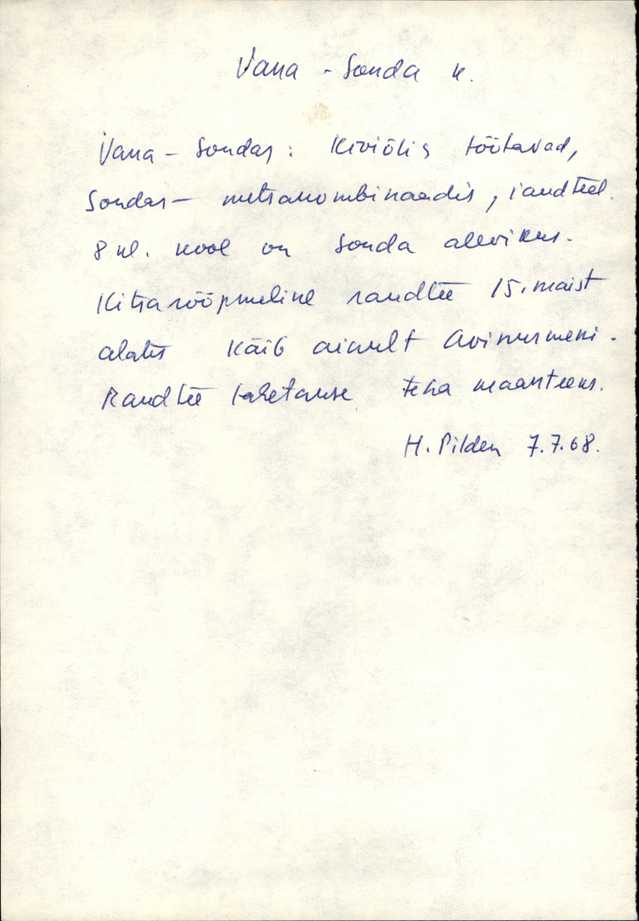 Vana-Sonda k.
Vana-Sondas: Kiviõlis töötavad,
Sondas - metsakombinaadis, raudteel.
8 kl. kool on Sonda alevikus.
Kitsarööpmeline raudtee 15. maist
alates käib ainult Avinurmeni.
Raudtee tahetakse teha maanteeks.
H. Pilden 7.7.68.